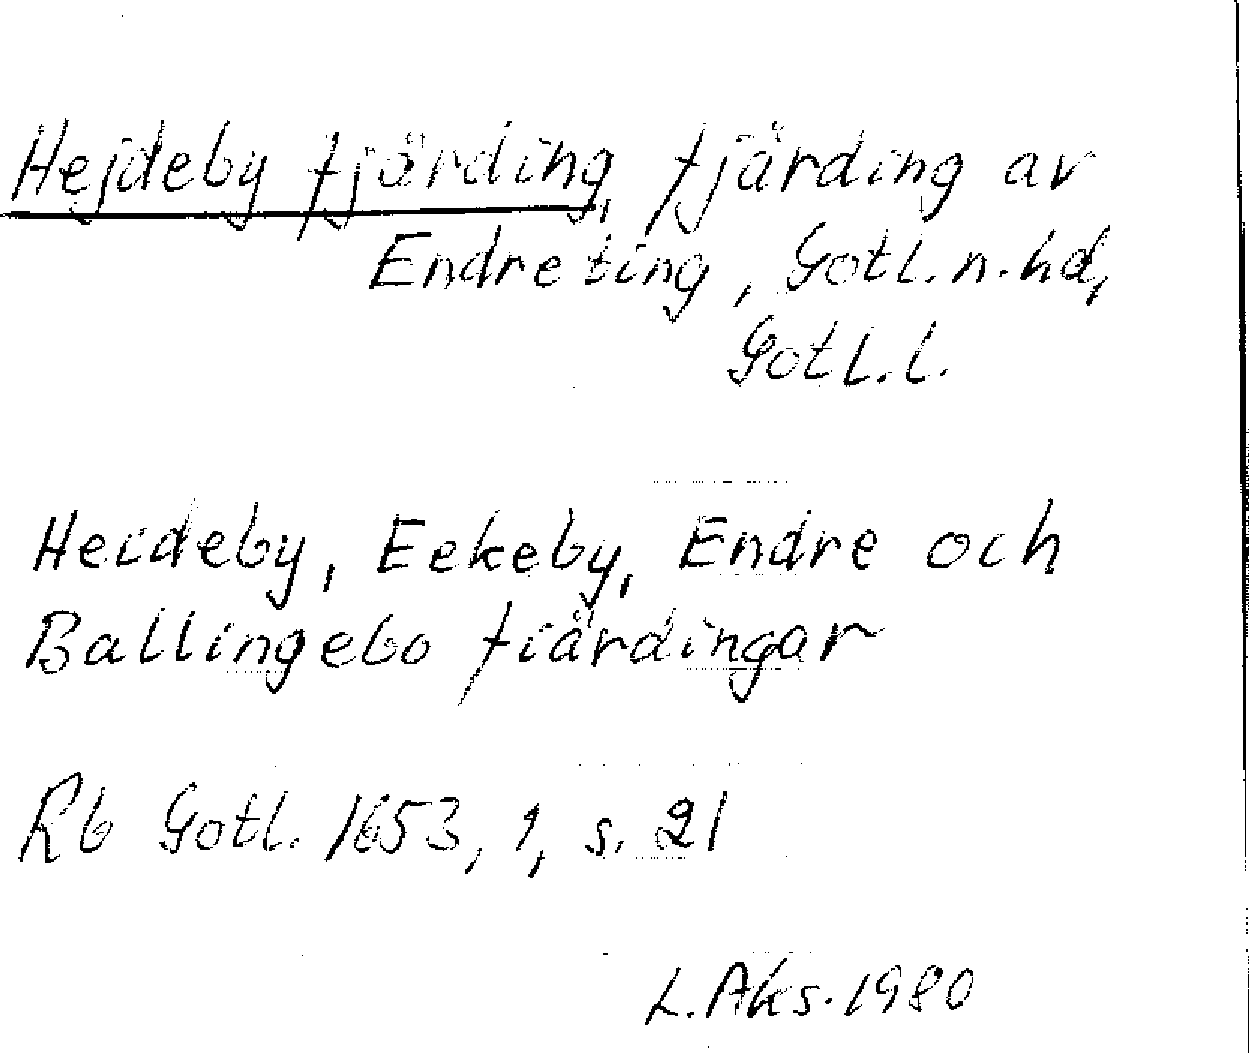 Hejdeby fjärding, fjärding av
Endre ting, Gotl. n. hd,
Gotl. l.
Heideby, Eekeby, Endre och
Ballingebo fiärdingar
Rb Gotl. 1653, 1, s. 21
L. Aks. 1980